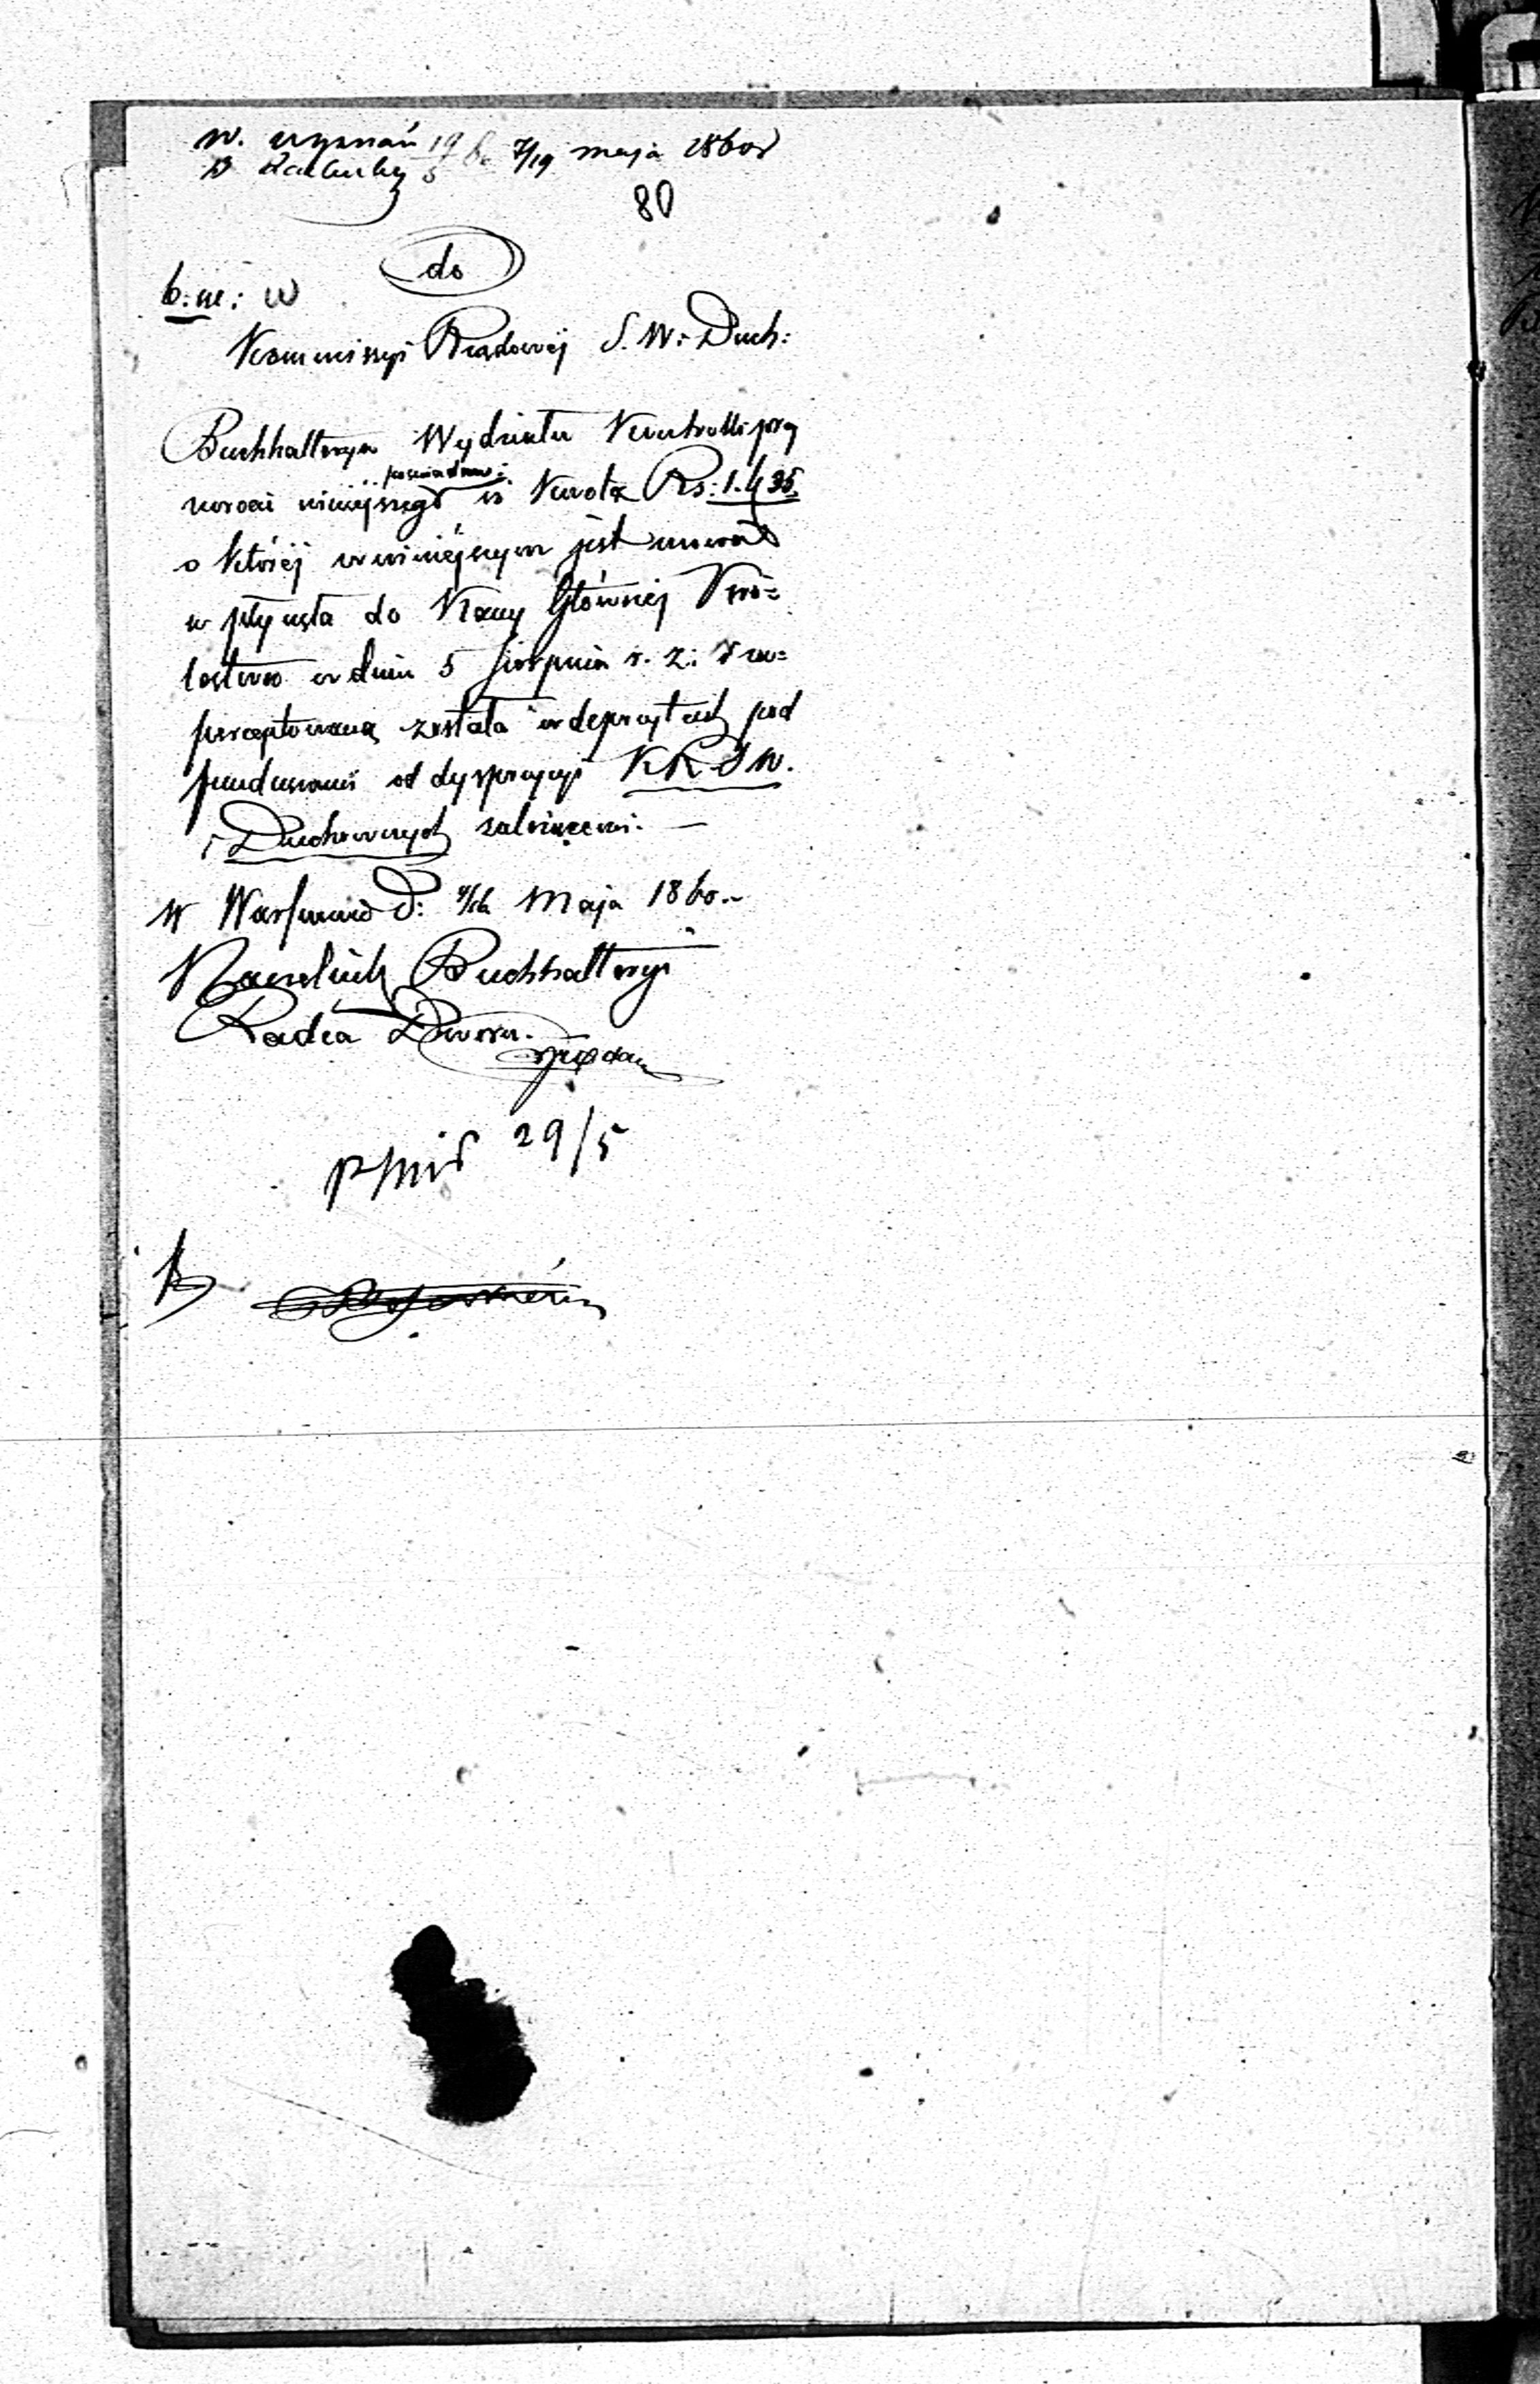 W. wyznań 19/5 7/19 maja 1860r
80
do
b: m: W
Kommissyi Rządowéj S. W: Duch:
Buchhalterya Wydziału Kontrolli przy
zwrocie niniejszego poświadcza: iż Kwota Rs: 1.435
o któréj w niniejszym jest mowa
wpłynęła do Kassy Głównéj Kró=
lestwa w dniu 5 Sierpnia r. z: i za=
perceptowaną została w depozytach pod
funduszami od dyspozycyi KRSW.
i Duchownych zależącemi. —
w Warszawie d: Maja 1860.
Naczelnik Buchhalteryi
Radca Dworu.
29/5